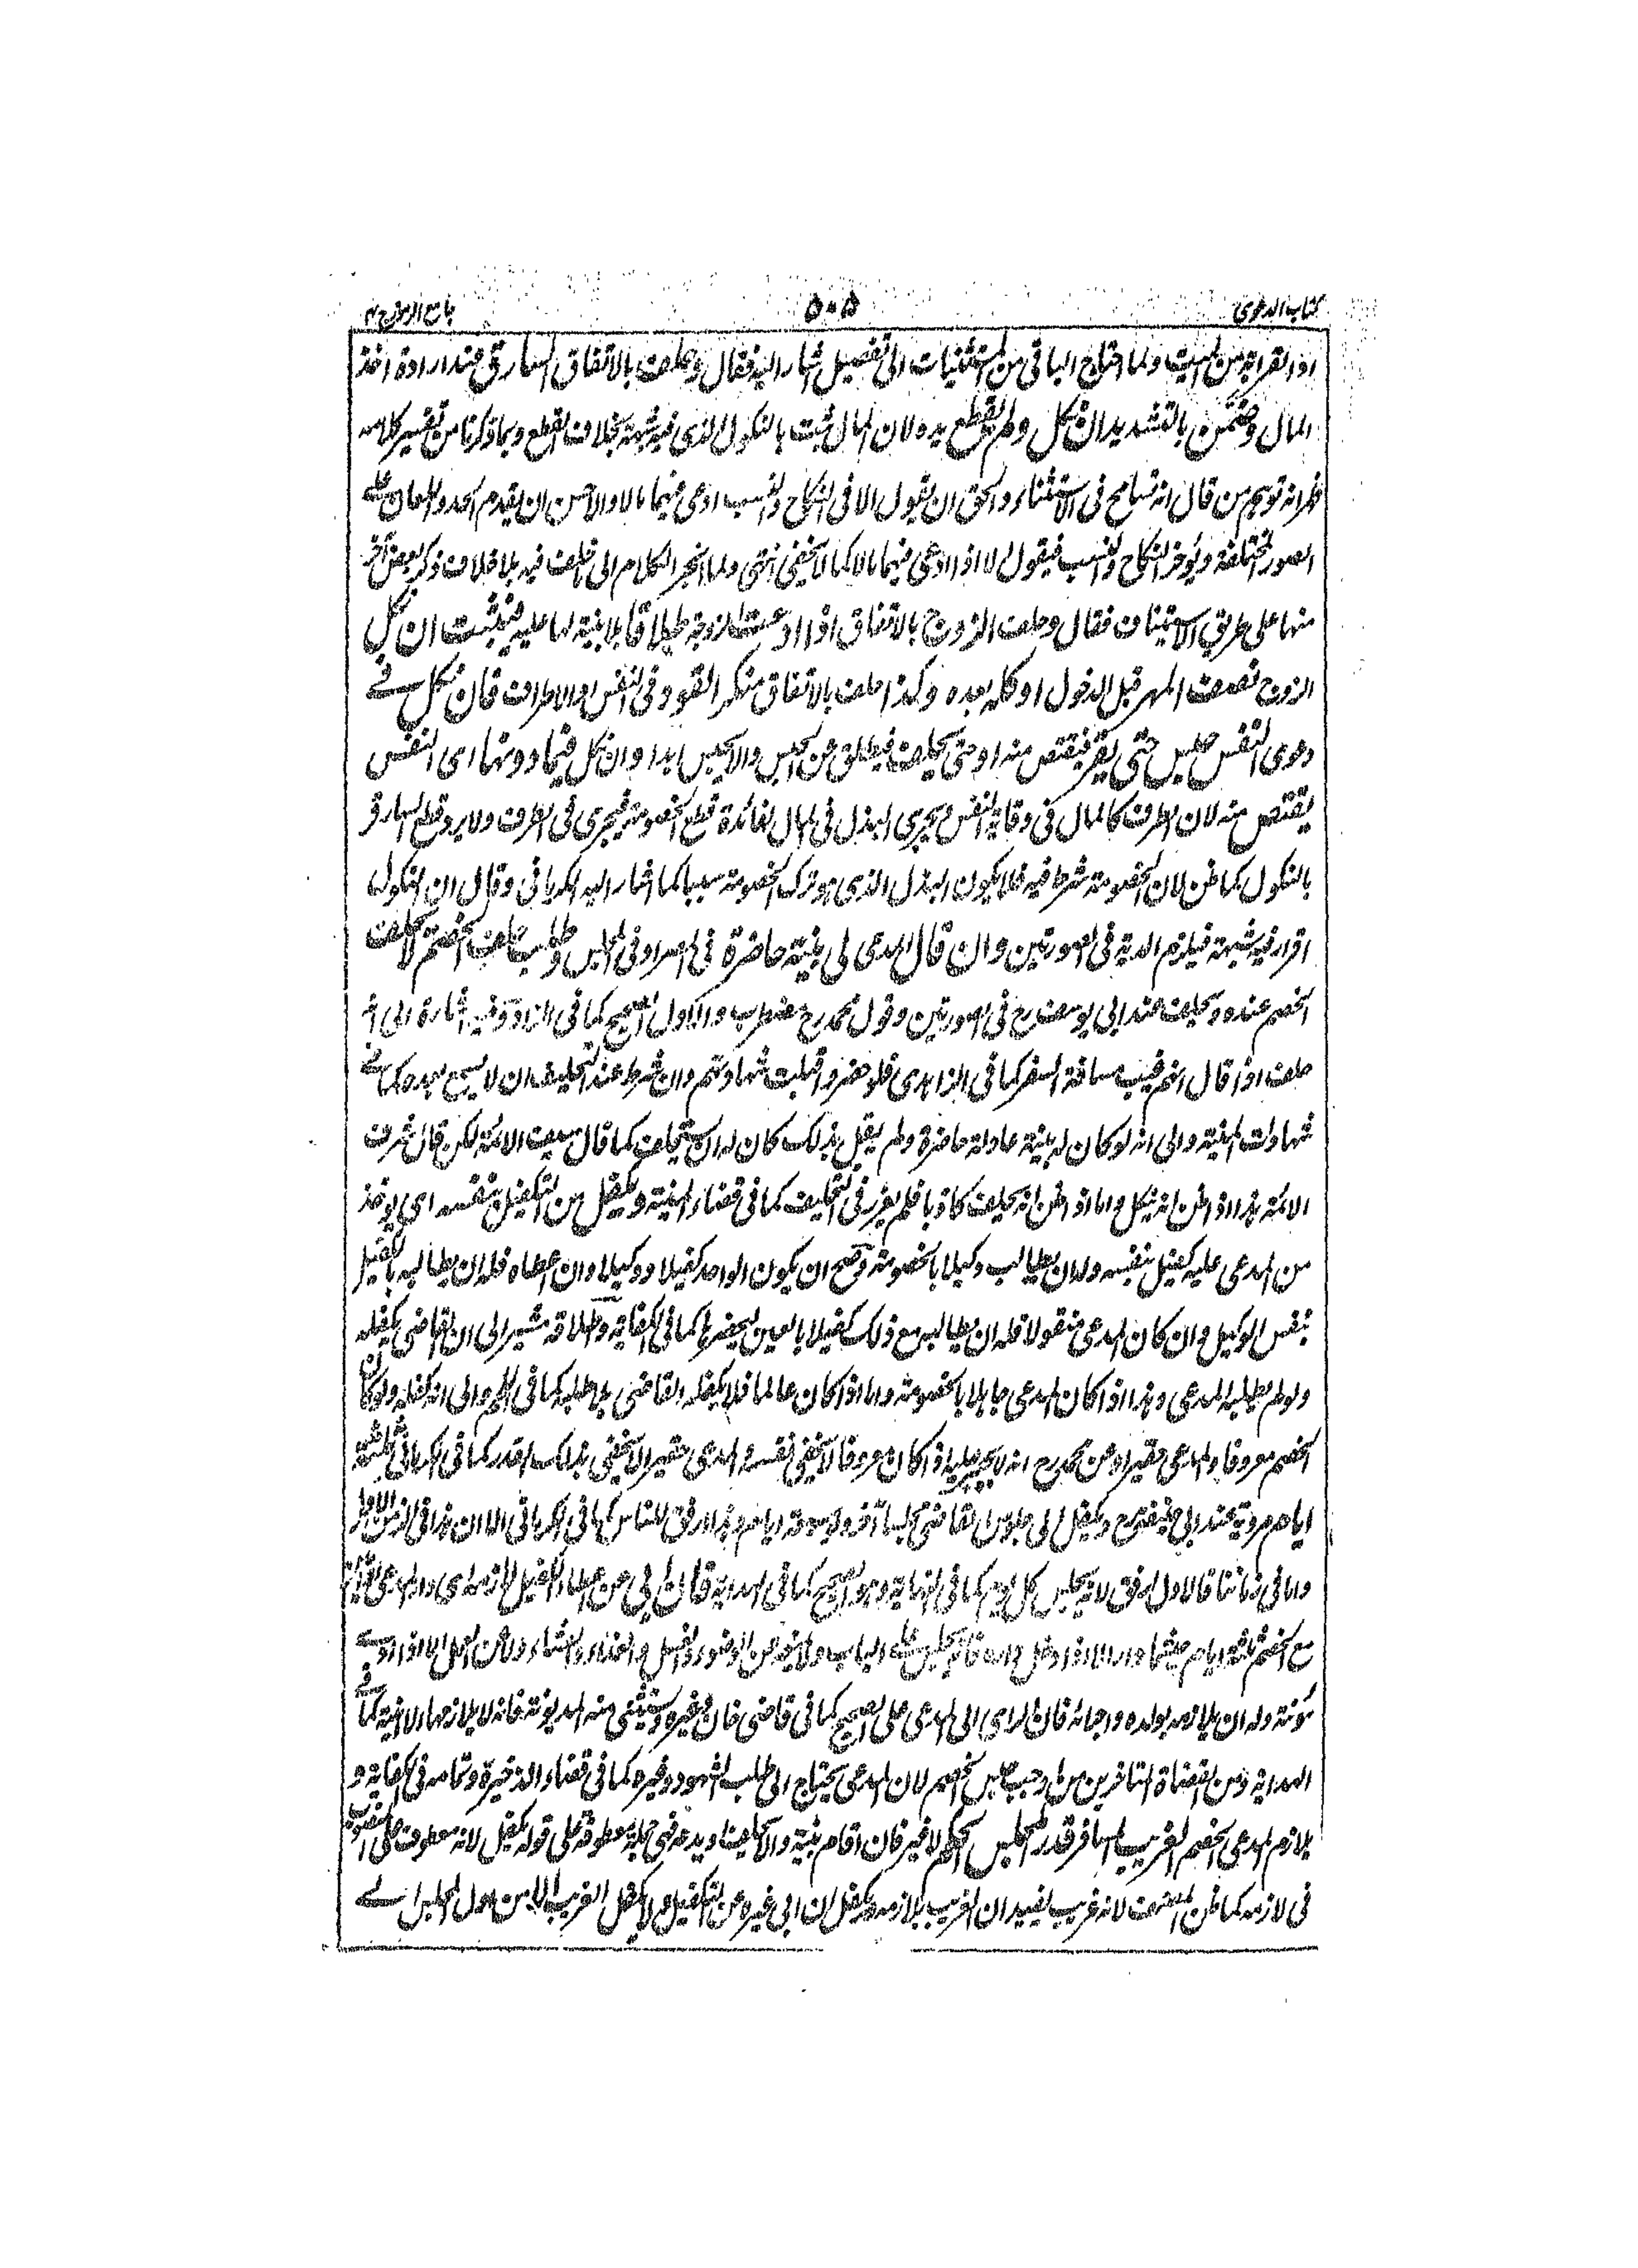 كتاب الدعوى
٥٠٥
جامع الرموز ج ٢
او القرابة من الميت ولما احتاج الباقى من المستثنيات الى تفصيل اشار اليه فقال وحلف بالاتفاق السارق عند ارادة اخذ
المال وضمن بالتشديد ان نكل ولم يقطع يده لان المال يثبت بالنكول الذى فيه شبهة بخلاف القطع وبما ذكرنا من تفسير كلامه
ظهر انه توهم من قال انه تسامح فى الاستثناء والحق ان يقول الا فى النكاح والنسب ادعى فيهما مالا والاحسن ان يقدم الحد واللعان على
الصور المختلفة ويؤخر النكاح والنسب فيقول لا اذا ادعى فيهما مالا كما لا يخفى انتهى ولما انجر الكلام الى حلف فيه بلا خلاف ذكر بعض آخر
منها على طريق الاستيناف فقال وحلف الزوج بالاتفاق اذا ادعت الزوجة طلاقا بلا بينة لها عليه فيثبت ان نكل
الزوج نصف المهر قبل الدخول او كله بعده وكذا حلف بالاتفاق منكر القود فى النفس او الاطراف فان نكل فى
دعوى النفس حبس حتى يقر فيقتص منه او حتى يحلف فيطلق عن الحبس والا يحبس ابدا وان نكل فيما دونها اى النفس
يقتص منه لان الطرف كالمال فى وقاية النفس ويجرى البذل فى المال لفائدة قطع الخصومة فيجرى فى الطرف ولا يرد قطع السارق
بالنكول كما ظن لان الخصومة شرط فيه فلا يكون البذل الذى هو ترك الخصومة سببا كما اشار اليه الكرمانى وقالا ان النكول
اقرار فيه شبهة فيلزم الدية فى الصورتين وان قال المدعى لى بينة حاضرة فى المصر او فى المجلس وطلب حلف الخصم لا يحلف
الخصم عنده ويحلف عند ابى يوسف رح فى الصورتين وقول محمد رح مضطرب والاول الصحيح كما فى الزاد وفيه اشارة الى انه
حلف اذا قال انهم غيب مسافة السفر كما فى الزاهدى فلو حضروا قبلت شهادتهم وان شرط عند التحليف ان لا يسمع بعده كما فى
شهادات المنية والى انه لو كان له بينة عادلة حاضرة ولم يقل بذلك كان له ان يستحلف كما قال سيف الائمة لكن قال شرف
الائمة هذا اذا ظن انه ينكل واما اذا ظن انه يحلف كاذبا فلم يعزر فى التحليف كما فى قضاء المنية ويكفل من التكفيل بنفسه اى يؤخذ
من المدعى عليه كفيل بنفسه وله ان يطالب وكيلا بالخصومة وصح ان يكون الواحد كفيلا ووكيلا وان اعطاه فله ان يطالبه بالكفيل
بنفس الوكيل وان كان المدعى منقولا فله ان يطالبه مع ذلك كفيلا بالعين ليحضرها كما فى الكفاية واطلاقه مشير الى ان القاضى يكفله
ولو لم يطلبه المدعى وهذا اذا كان المدعى جاهلا بالخصومة واما اذا كان عالما فلا يكفله القاضى بلا طلبه كما فى والى انه كفله ولو كان
الخصم معروفا والمدعى حقيرا وعن محمد رح انه لا يجبر عليه اذا كان معروفا لا يخفى نفسه والمدعى حقير لا يخفى بذلك القدر كما فى الكرمانى ثلثة
ايام مروية عند ابى حنيفة رح ويكفل الى جلوس القاضى مجلسا آخر وهذا ارفق للناس كما فى الكرمانى الا ان هذا فى الزمن الاول
واما فى زماننا فالاول ارفق لانه يجلس كل يوم كما فى النهاية وهو الصحيح كما فى الهداية فان ابى عن اعطاء الكفيل لازمه اى دار المدعى
مع الخصم ثلثة ايام حيثما دار الا اذا دخل داره فانه يجلس على الباب ولا يمنعه من الوضوء والغسل والغداء والعشاء ولا من العمل الا اذا ادى
مؤنته وله ان يلازمه بولده واحبائه فان الراى الى المدعى على الصحيح كما فى قاضى خان وغيره ويستثنى منه المديونة فانه لا يلازمها الاجنبى كما فى
الهداية ومن القضاة المتاخرين من اوجب حبس الخصم لان المدعى يحتاج الى طلب الشهود وغيره كما فى قضاء الذخيرة وتمامه فى الكفاية و
يلازم المدعى الخصم الغريب المسافر قدر مجلس الحكم لا غير فان اقام بينة والا يحلفه او يدعه فهى جملة معطوفة على قوله يكفل لانه معطوف على المنصوب
فى لازمه كما ظن المصنف لانه غريب ليفيد ان الغريب يلازمه ويكفل ان ابى غيره عن التكفيل ولا يكفل الغريب الا من اول المجلس الى